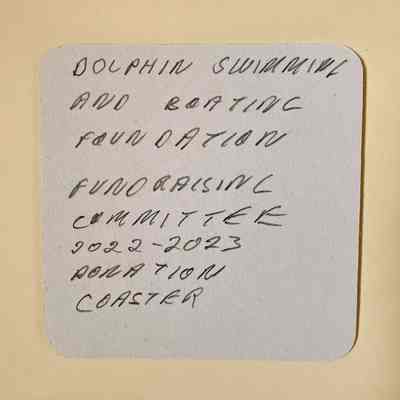 DOLPHIN SWIMMING
AND BOATING
FOUNDATION
FUNDRAISING
COMMITTEE
2022-2023
DONATION
COASTER